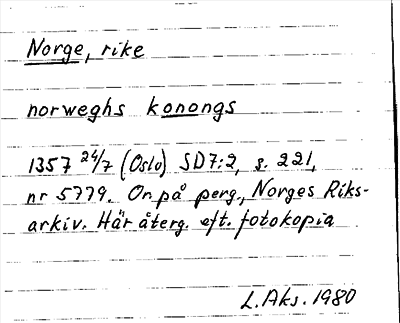 Norge, rike
norweghs konongs
1357 24/7 (Oslo) SD7:2, s. 221,
nr 5779. Or på perg., Norges Riks-
arkiv. Här återg. eft. fotokopia
L. Aks. 1980